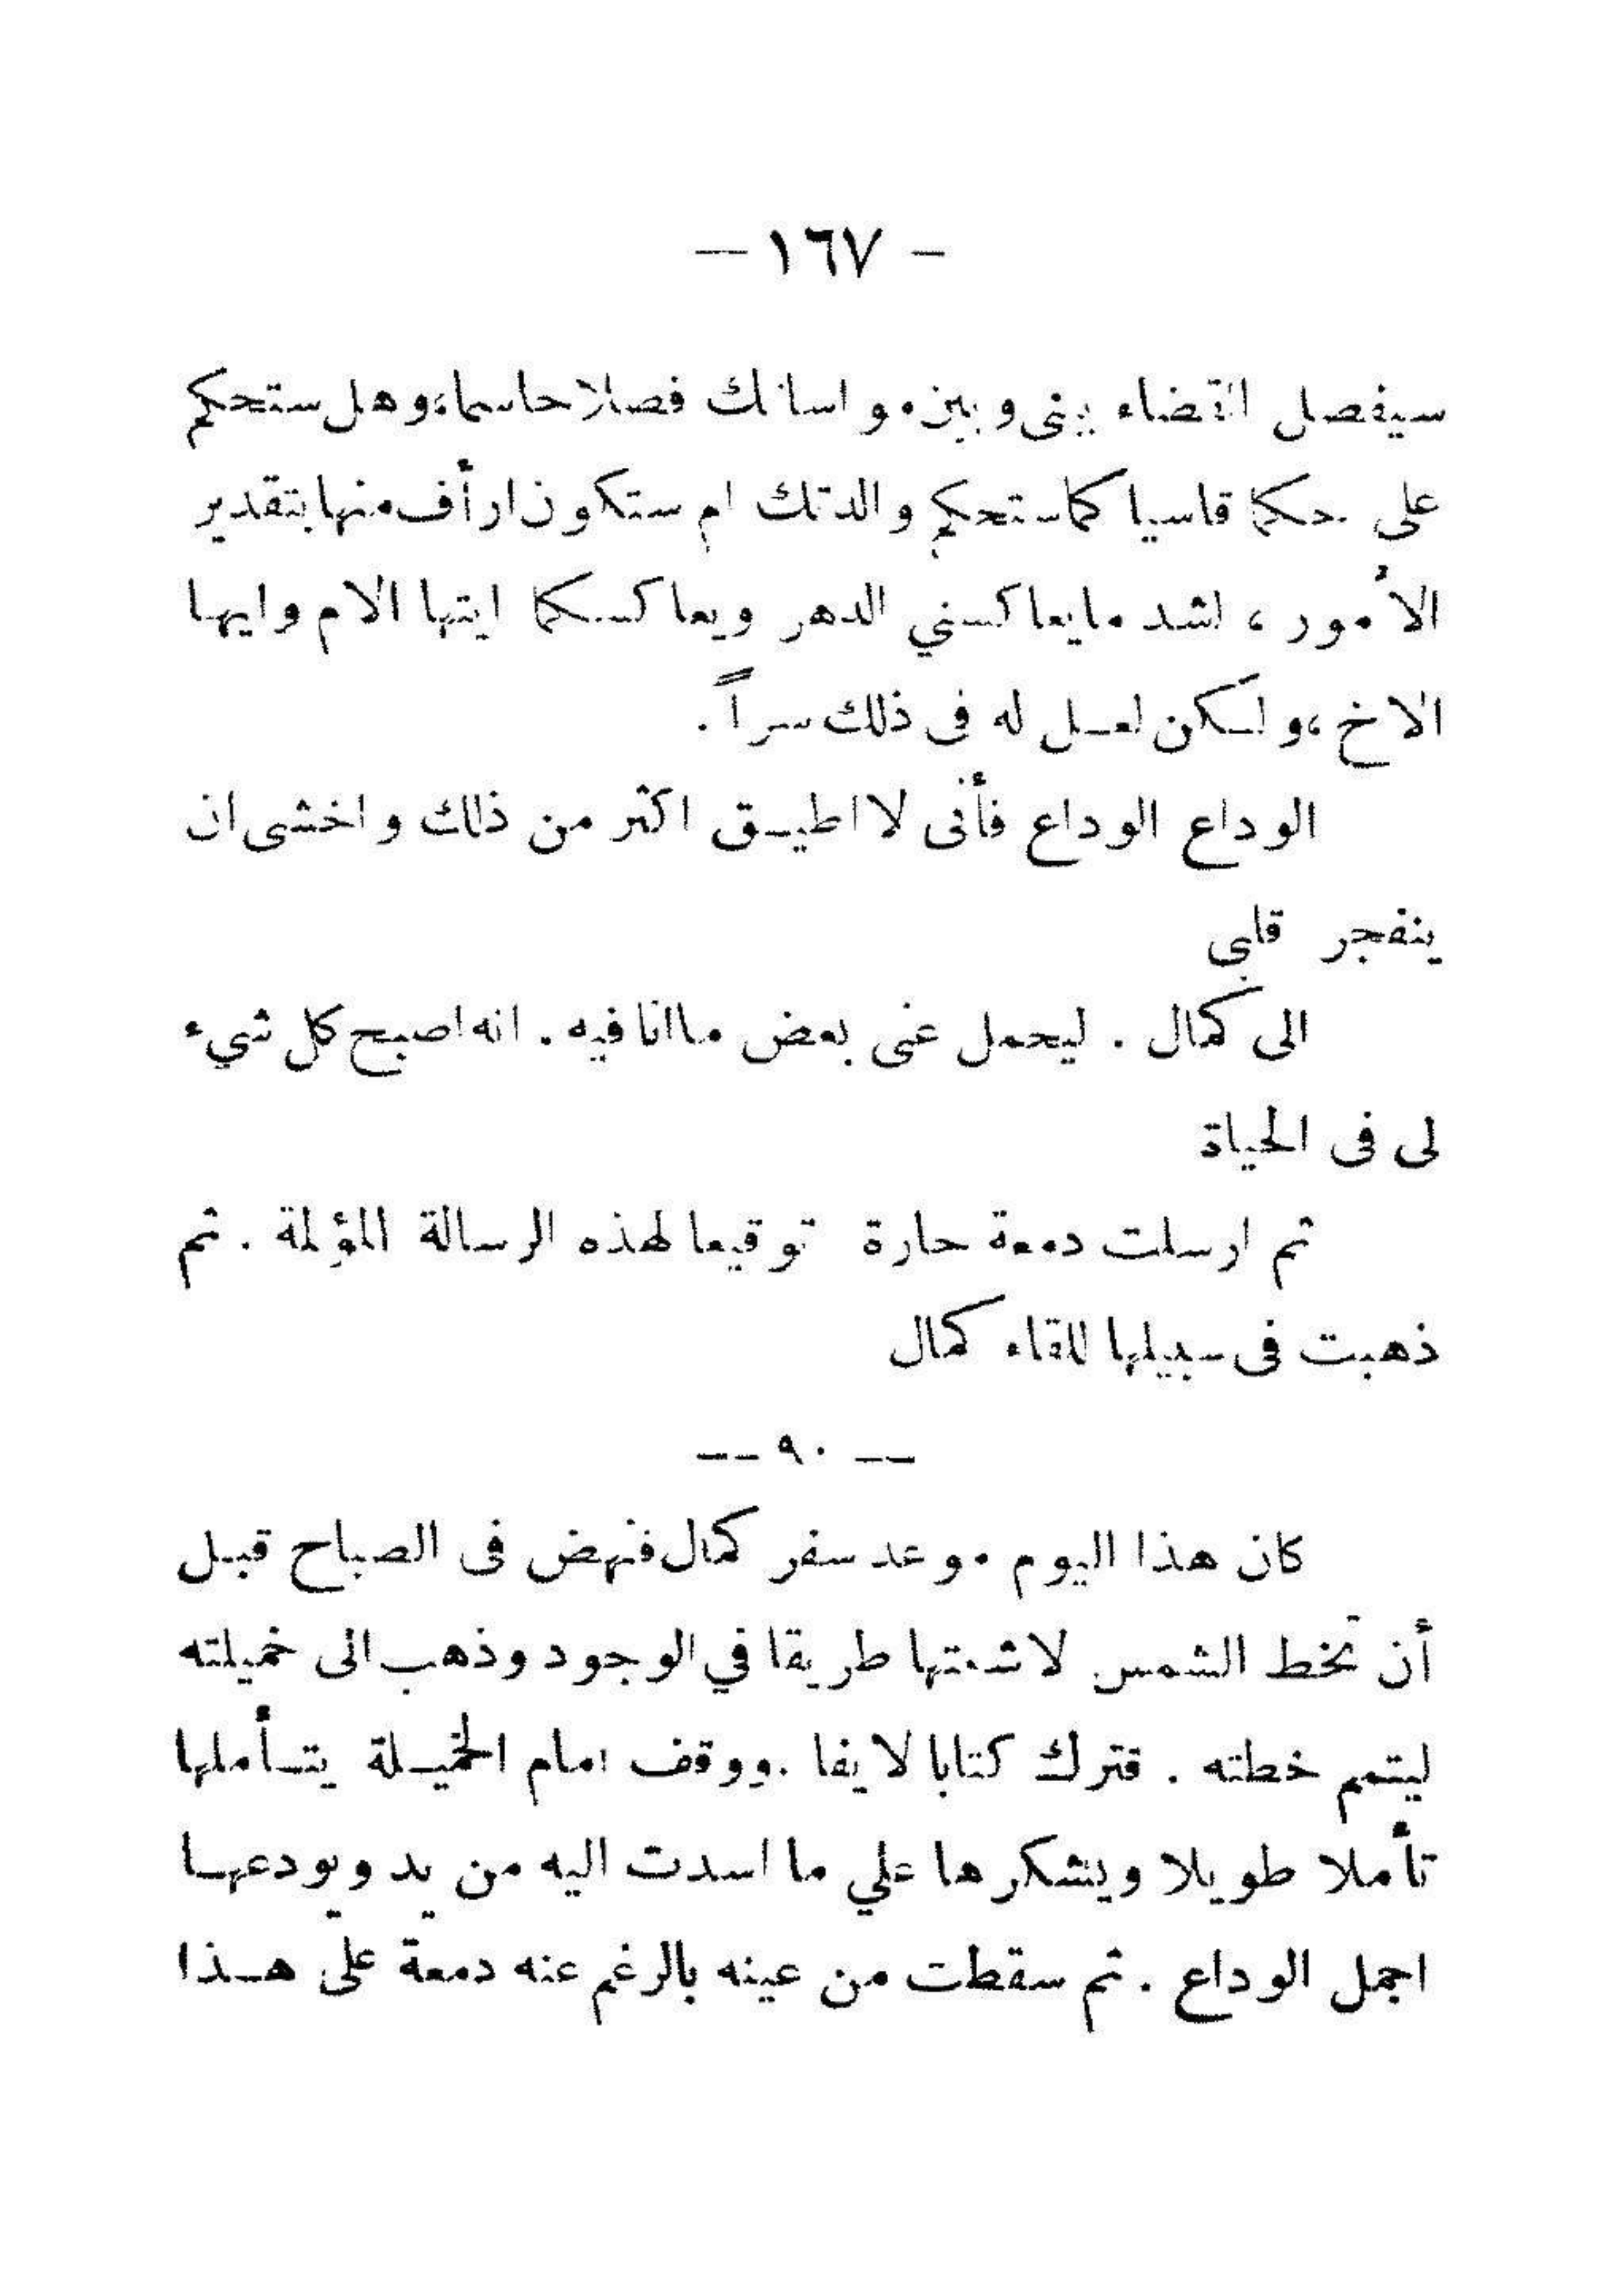 — ١٦٧ —
سيفصل القضاء بينى وبين مواساتك فصلا حاسما، وهل ستحكم
على حكما قاسيا كما ستحكم والدتك ام ستكون ارأف منها بتقدير
الأمور ، لشد ما يعاكسني الدهر ويعاكسكما ايتها الام وايها
الاخ ، ولكن لعل له فى ذلك سراً .
الوداع الوداع فأنى لا اطيق اكثر من ذلك واخشى ان
ينفجر قلبى
الى كمال . ليحمل عنى بعض ما انا فيه . انه اصبح كل شيء
لى فى الحياة
ثم ارسلت دمعة حارة توقيعا لهذه الرسالة المؤلمة . ثم
ذهبت فى سبيلها للقاء كمال
— ٩٠ —
كان هذا اليوم موعد سفر كمال فنهض فى الصباح قبل
أن تخط الشمس لاشعتها طريقا في الوجود وذهب الى خميلته
ليتمم خطته . فترك كتابا لايفا . ووقف امام الخميلة يتأملها
تأملا طويلا ويشكرها علي ما اسدت اليه من يد ويودعها
اجمل الوداع . ثم سقطت من عينه بالرغم عنه دمعة على هذا